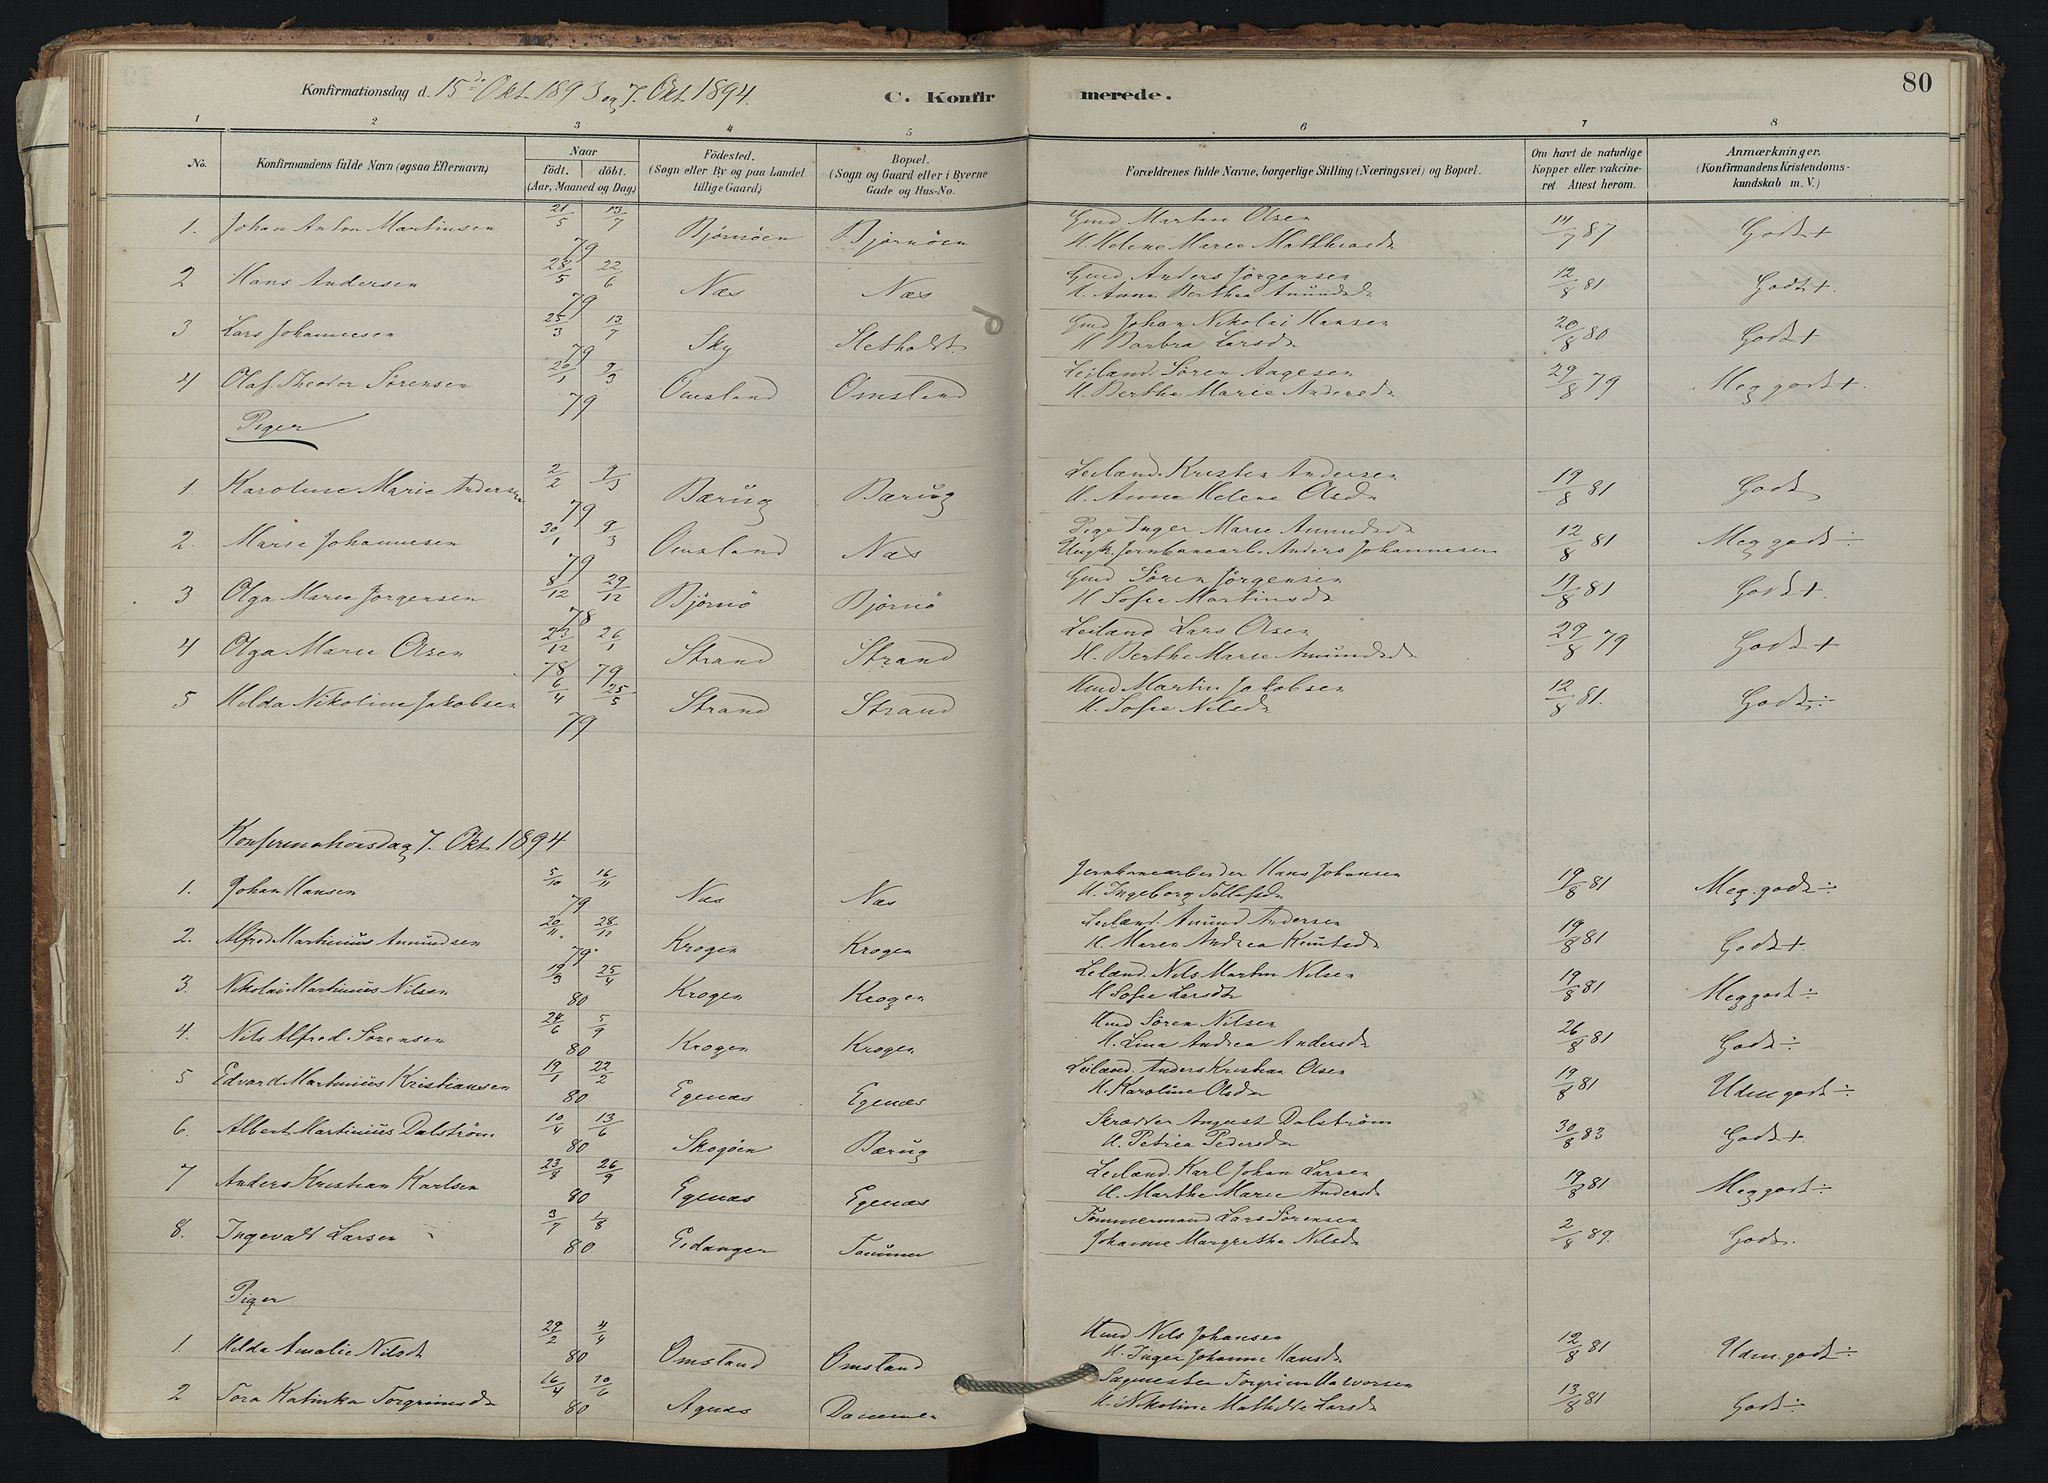 Konfirmationsdag d. 15de Okt. 1893 og 7. Okt. 1894.
C. Konfirmerede.
80
1 2 3 4 5 6 7 8
No.
Konfirmandens fulde Navn (ogsaa Efternavn)
Naar
födt. döbt.
(Aar, Maaned og Dag)
Födested.
(Sogn eller By og paa Landet
tillige Gaard)
Bopæl.
(Sogn og Gaard eller i Byerne
Gade og Hus-No.
Forældrenes fulde Navne, borgerlige Stilling (Næringsvei) og Bopæl.
Om havt de naturlige
Kopper eller vakcine-
ret Attest herom.
Anmærkninger.
(Konfirmandens Kristendoms-
kundskab m. V.)
1. Johan Anton Martinsen 21/5 13/7 79 Bjørnöen Bjørnöen Gmd Martin Olsen
H. Helene Marie Mathiasd. 14/7 87 Godt +
2 Hans Andersen 28/5 22/6 79 Næs Næs Gmd Anders Jørgensen
H. Anne Berthea Amundsd. 12/8 81 Godt +
3 Lars Johannesen 25/3 13/7 79 Sky Hetholdt Gmd Johan Nikolai Hansen
H Barbra Larsd. 20/8 80 Godt +
4 Olaf Theodor Sörensen 20/1 9/3 79 Omsland Omsland Leiland. Sören Aagesen
H. Berthe Marie Andersd. 29/8 79 Meg godt +
Piger
1. Karoline Marie Andersen 2/2 9/3 79 Bærug Bærug Leilænd. Kristen Andersen
H. Anne Helene Olsd. 19/8 81 Godt
2. Marie Johannesen 30/1 9/3 79 Omsland Næs Pige Inger Marie Amundsd.
Ungk. Jernbanearb. Anders Johannesen 12/8 81 Meg godt ÷
3 Olga Marie Jørgensen 8/12 29/12 78 Bjørnö Bjørnö Gmd Sören Jörgensen
H Sofie Martinsd. 19/8 81 Godt +
4 Olga Marie Olsen 23/12 78 26/1 79 Strand Strand Leiland Lars Olsen
H. Berthe Marie Amundsd. 29/8 79 Godt +
5 Hilda Nikoline Jakobsen 6/4 25/5 79 Strand Strand Hmd Martin Jakobsen
H. Sofie Nilsd. 12/8 81. Godt ÷
Konfirmationsdag 7. Okt. 1894
1. Johan Hansen 5/10 16/11 79 Næs Næs Jernbanearbeider Hans Johansen
H. Ingeborg Tollefsd. 19/8 81 Meg. godt ÷
2. Alfred Martinius Amundsen 20/11 28/12 79 Krogen Krogen Leilænd. Amund Andersen
H. Maren Andrea Knutsd. 19/8 81 Godt +
3. Nikolai Martinius Nilsen 19/3 25/4 80 Krogen Krogen Leilænd. Nils Martin Nilsen
H Sofie Larsd. 19/8 81 Meg godt ÷
4. Nils Alfred Sörensen 24/6 5/9 80 Krogen Krogen Hmd Sören Nilsen
H. Lina Andrea Andersd. 26/8 81 Godt ÷
5 Edvard Martinius Kristiansen 19/1 22/2 80 Egenæs Egenæs Leilænd. Anders Kristian Olsen
H. Karoline Olsd. 19/8 81 Udm godt ÷
6. Albert Martinius Dalström 10/4 13/6 80 Skogöen Bærug Skrædder August Dalström
H. Petrea Pedersd. 30/8 83 Godt +
7 Anders Kristian Karlsen 23/8 26/9 80 Egenæs Egenæs Leiland. Karl Johan Larsen
H. Marthe Marie Andersd. 19/8 81 Meg godt ÷
8. Ingevald Larsen 3/7 1/8 80 Eidanger Tömmermand Lars Sörensen
Johanne Margrethe Nilsd. 2/8 89. Godt.
Piger
1. Hilda Amalie Nilsdt 29/2 4/4 80 Omsland Omsland Hmd Nils Johansen
H. Inger Johanne Hansd. 12/8 81 Udm. godt ÷
2 Tora Katinka Torgrimsd. 16/4 10/6 80 Agnæs Dammen Sagmester Torgrim Halvorsen
H. Nikoline Mathilde Larsd. 13/8 81 Godt ÷